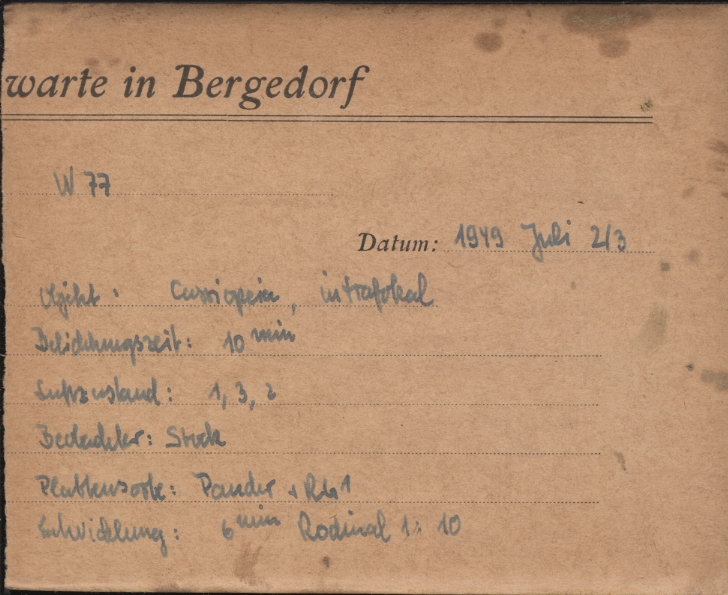 warte in Bergedorf
W 77
Datum: 1949 Juli 2/3
Objekt: Cassiopeia, intrafokal
Belichtungszeit: 10 min
Luftzustand: 1, 3, 2
Beobachter: Stock
Plattensorte: + RG1
Entwicklung: 6 min Rodinal 1:10